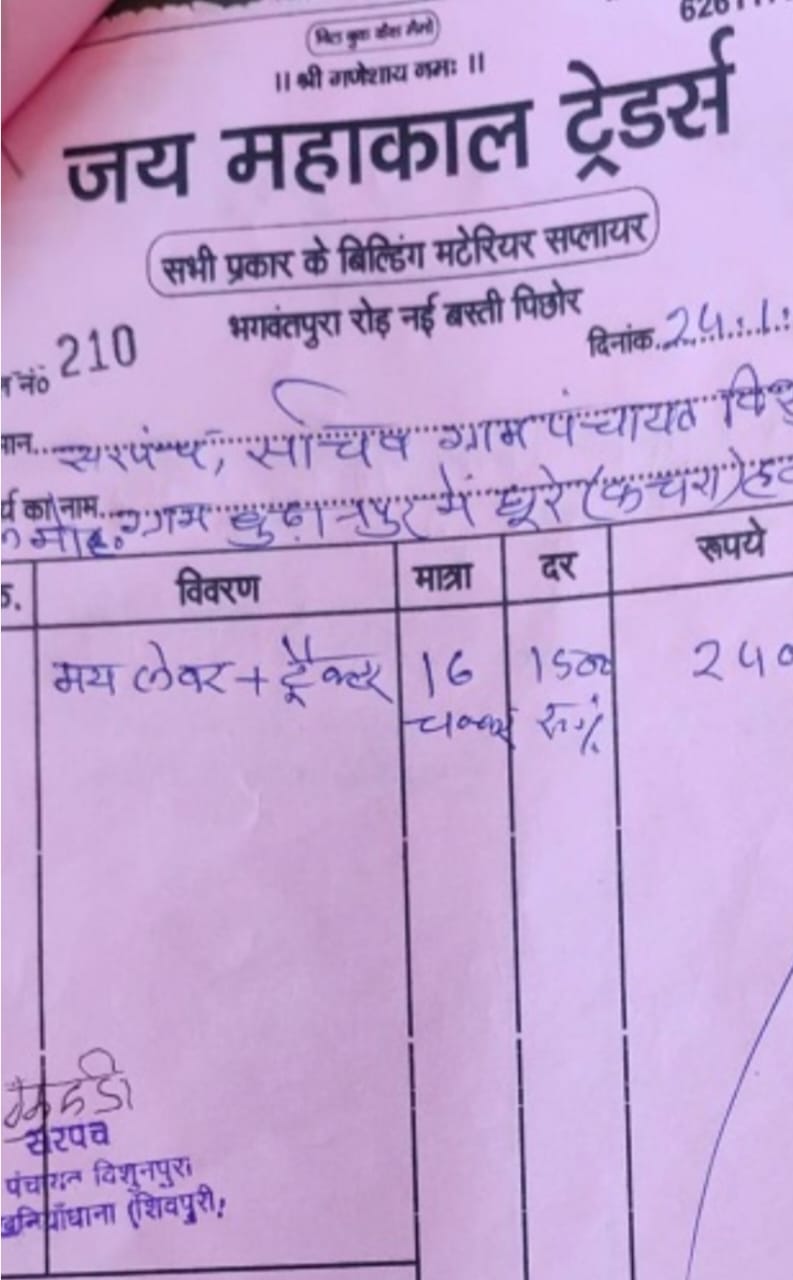 626111
बिल बुक सेवा मैमो
।। श्री गणेशाय नमः ।।
जय महाकाल ट्रेडर्स
सभी प्रकार के बिल्डिंग मटेरियर सप्लायर
भगवंतपुरा रोड़ नई बस्ती पिछोर
नं० 210
दिनांक 24.1.
मान. सरपंच, सचिव ग्राम पंचायत
र्य का नाम. ग्राम में घूरे (कचरा)
विवरण मात्रा दर रूपये
मय लेवर + ट्रैक्टर 16 1500 240
चक्कर रु%
सरपंच
पंचायत विशुनपुरा
खनियाँधाना (शिवपुरी)